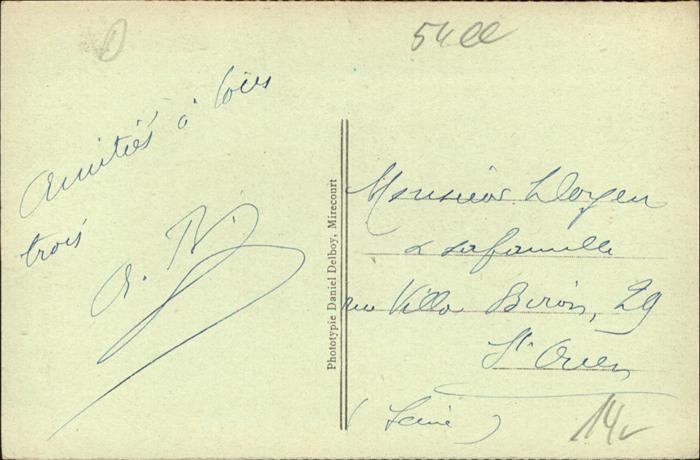 54
Amitiés à tous
trois
Phototypie Daniel Delboy, Mirecourt
Monsieur Doyen
& sa famille
rue Villa Biron, 29
St Ouen
(Seine)
14